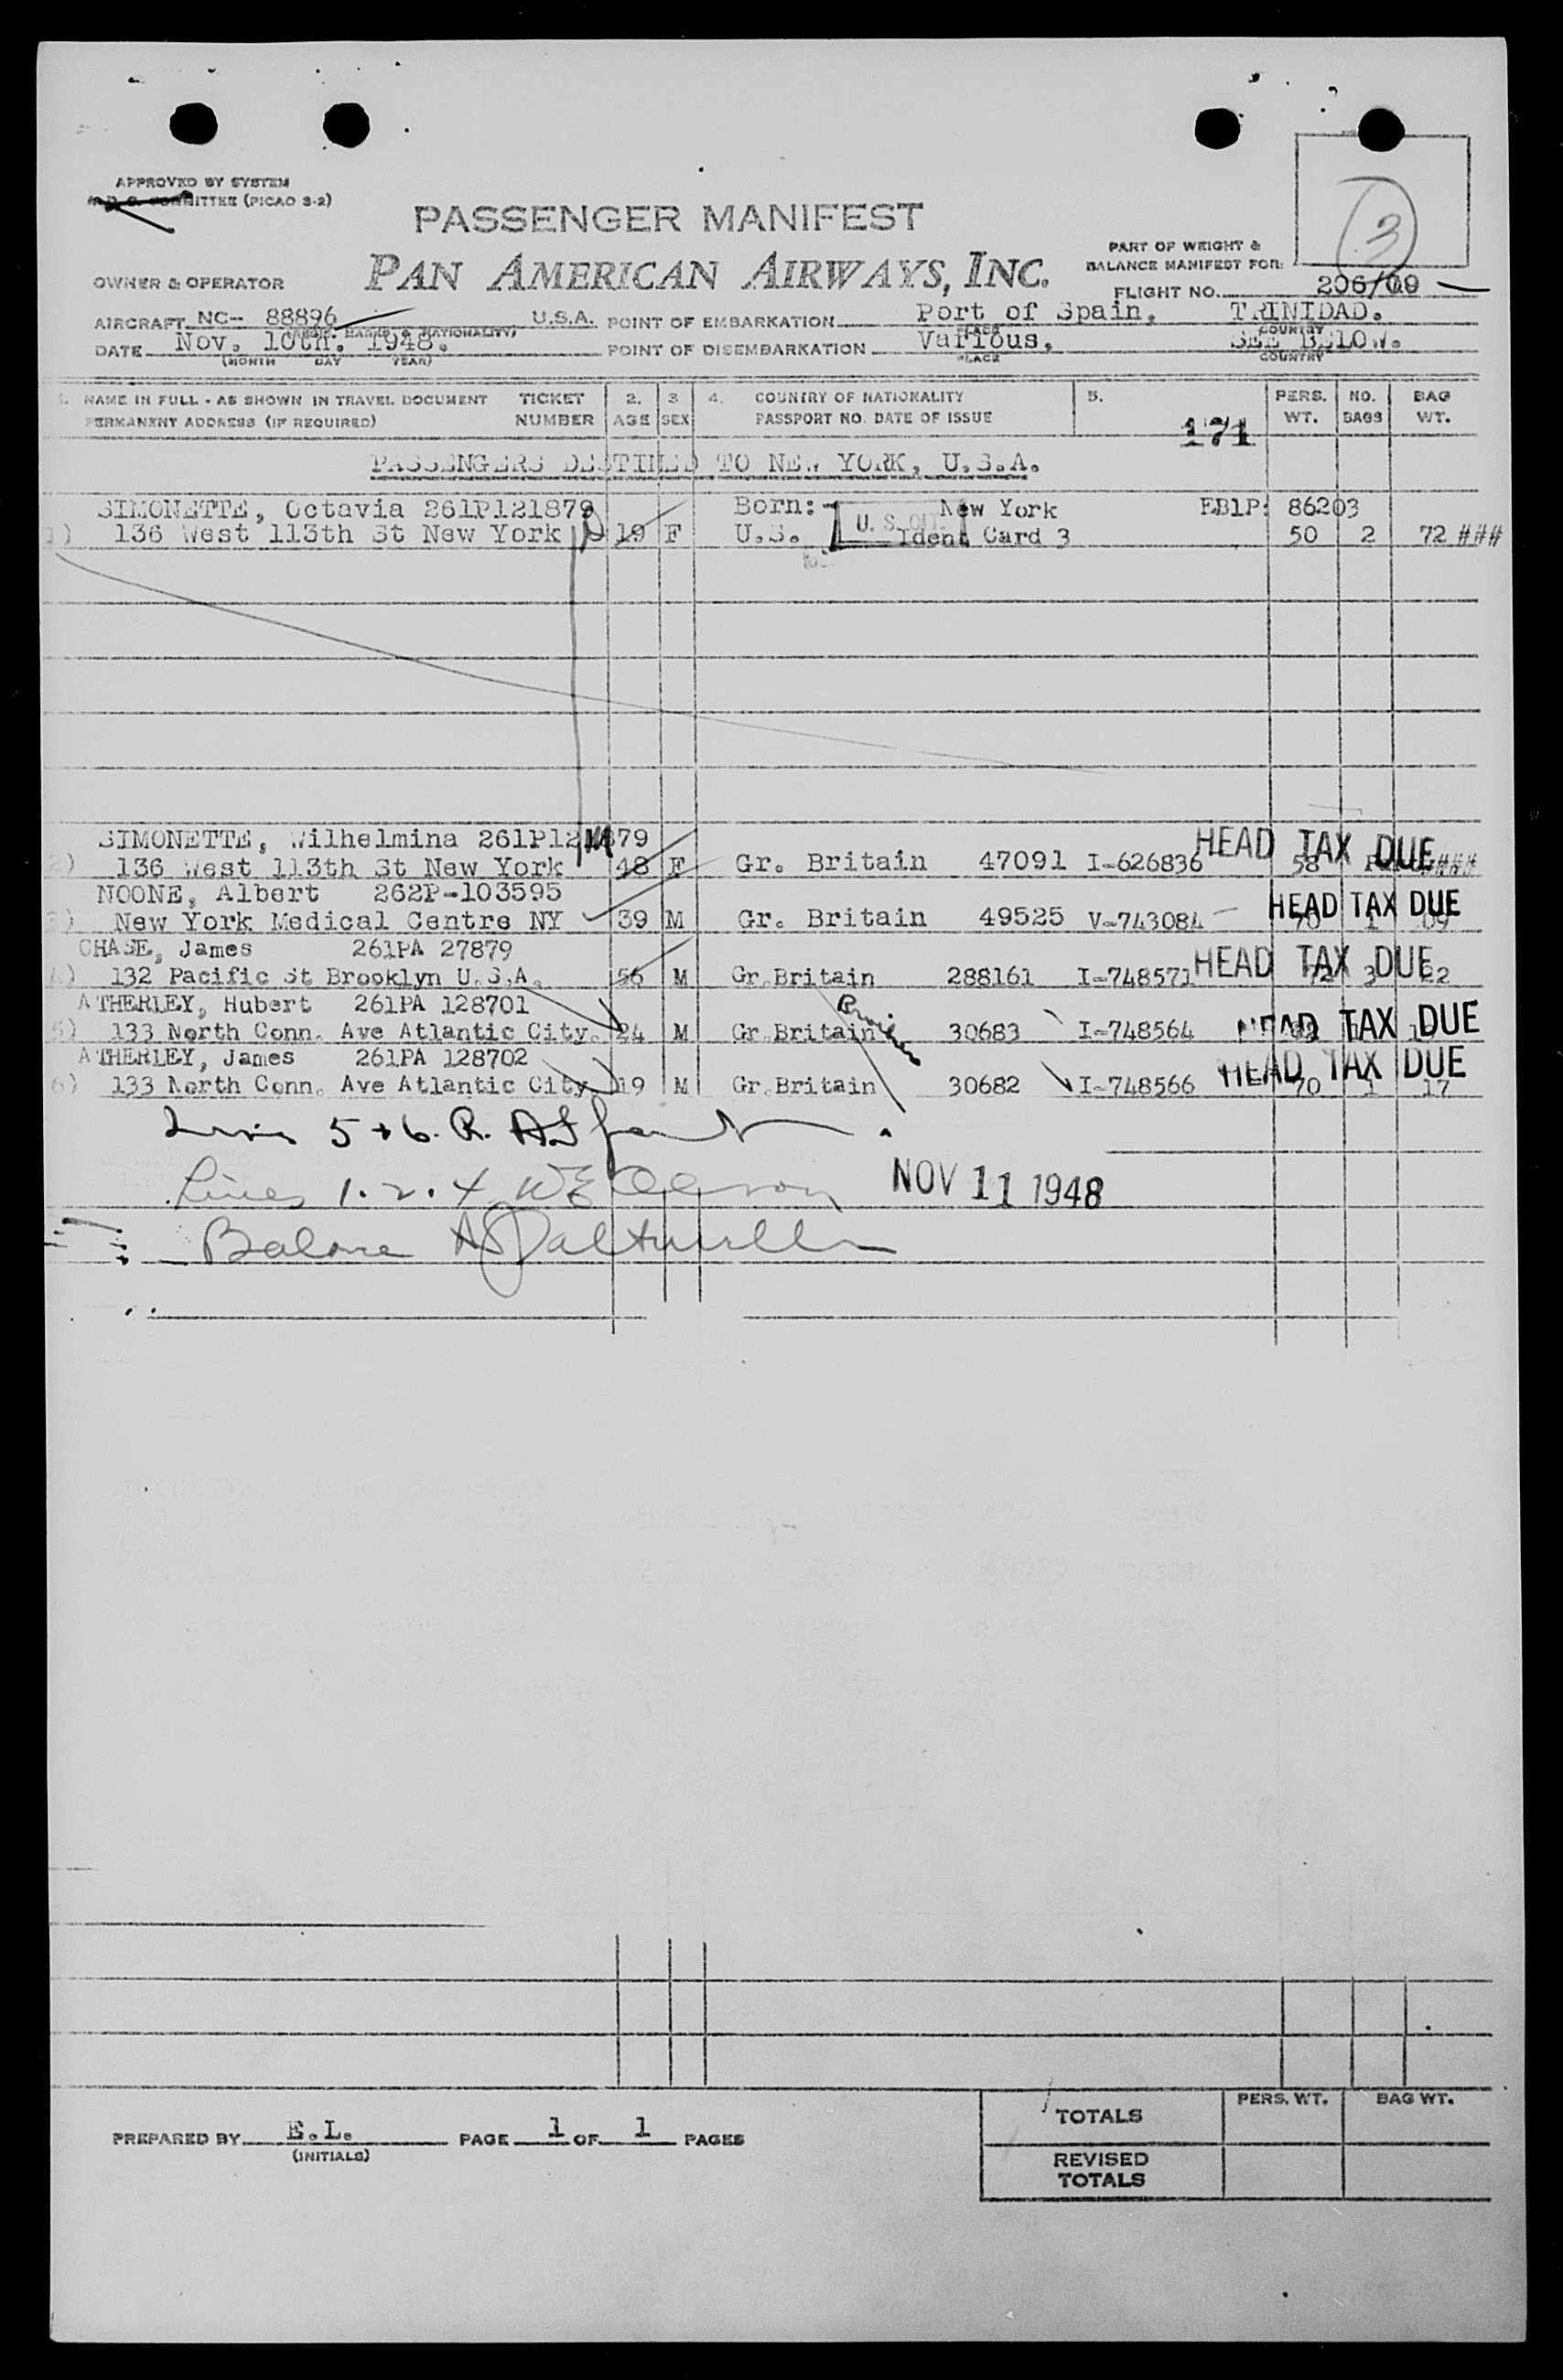 APPROVED BY SYSTEM
COMMITTEE (PICAO S-2)
3
PASSENGER MANIFEST
PART OF WEIGHT &
BALANCE MANIFEST FOR:
OWNER & OPERATOR PAN AMERICAN AIRWAYS, INC.
FLIGHT NO. 206/09
AIRCRAFT NC- 88896 U.S.A. POINT OF EMBARKATION Port of Spain, TRINIDAD.
MARKS & NATIONALITY) PLACE COUNTRY
DATE Nov. 10th. 1948. POINT OF DISEMBARKATION Various, SEE BELOW.
(MONTH DAY YEAR) PLACE COUNTRY
1. NAME IN FULL - AS SHOWN IN TRAVEL DOCUMENT TICKET 2. 3 4. COUNTRY OF NATIONALITY 5. PERS. NO. BAG
PERMANENT ADDRESS (IF REQUIRED) NUMBER AGE SEX PASSPORT NO. DATE OF ISSUE WT. BAGS WT.
171
PASSENGERS DESTINED TO NEW YORK, U.S.A.
SIMONETTE, Octavia 261P121879 Born: New York EB1P: 86203
1) 136 West 113th St New York 19 F U.S. U.S. CIT. Ident Card 3 50 2 72 ###
SIMONETTE, Wilhelmina 261P121879 HEAD TAX DUE
2) 136 West 113th St New York 48 F Gr. Britain 47091 I-626836 58
NOONE, Albert 262P-103595
3) New York Medical Centre NY 39 M Gr. Britain 49525 V-743084 HEAD TAX DUE 70 1 09
CHASE, James 261PA 27879
4) 132 Pacific St Brooklyn U.S.A. 56 M Gr.Britain 288161 I-748571 HEAD TAX DUE 72 3 22
ATHERLEY, Hubert 261PA 128701
5) 133 North Conn. Ave Atlantic City. 24 M Gr.Britain 30683 I-748564 HEAD TAX DUE
ATHERLEY, James 261PA 128702
6) 133 North Conn. Ave Atlantic City. 19 M Gr.Britain 30682 I-748566 HEAD TAX DUE 70 1 17
5 + 6. R.
Lines 1. 2. 4 NOV 11 1948
PREPARED BY E.L. PAGE 1 OF 1 PAGES
(INITIALS)
PERS. WT. BAG WT.
TOTALS
REVISED
TOTALS